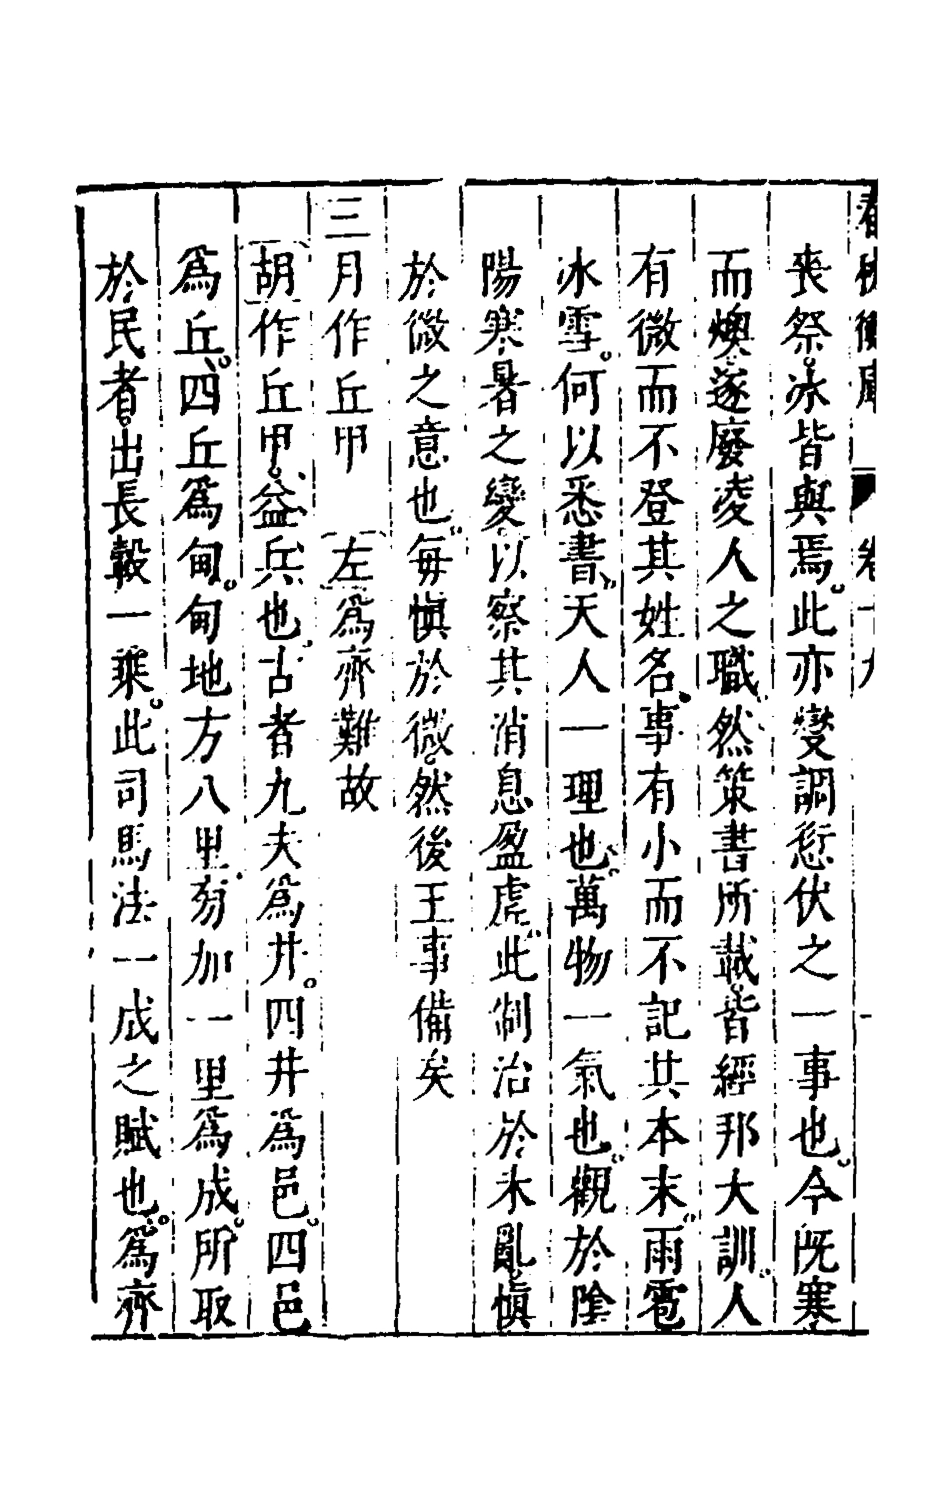 春秋衡庫 卷十九
喪祭冰皆與焉此亦變調愆伏之一事也今旣寒
而燠遂廢凌人之職然策書所載皆經邦大訓人
有微而不登其姓名事有小而不記其本末雨雹
冰雪何以悉書天人一理也萬物一氣也觀於陰
陽寒暑之變以察其消息盈虛此制治於未亂愼
於微之意也每愼於微然後王事備矣
三月作丘甲 左爲齊難故
胡作丘甲益兵也古者九夫爲井四井爲邑四邑
爲丘四丘爲甸甸地方八里旁加一里爲成所取
於民者出長轂一乘此司馬法一成之賦也爲齊